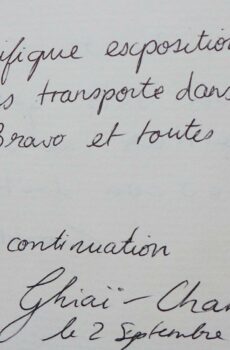 ifique exposition
s transporte dans
Bravo et toutes
continuation
Ghiaï - Cha
le 2 Septembre